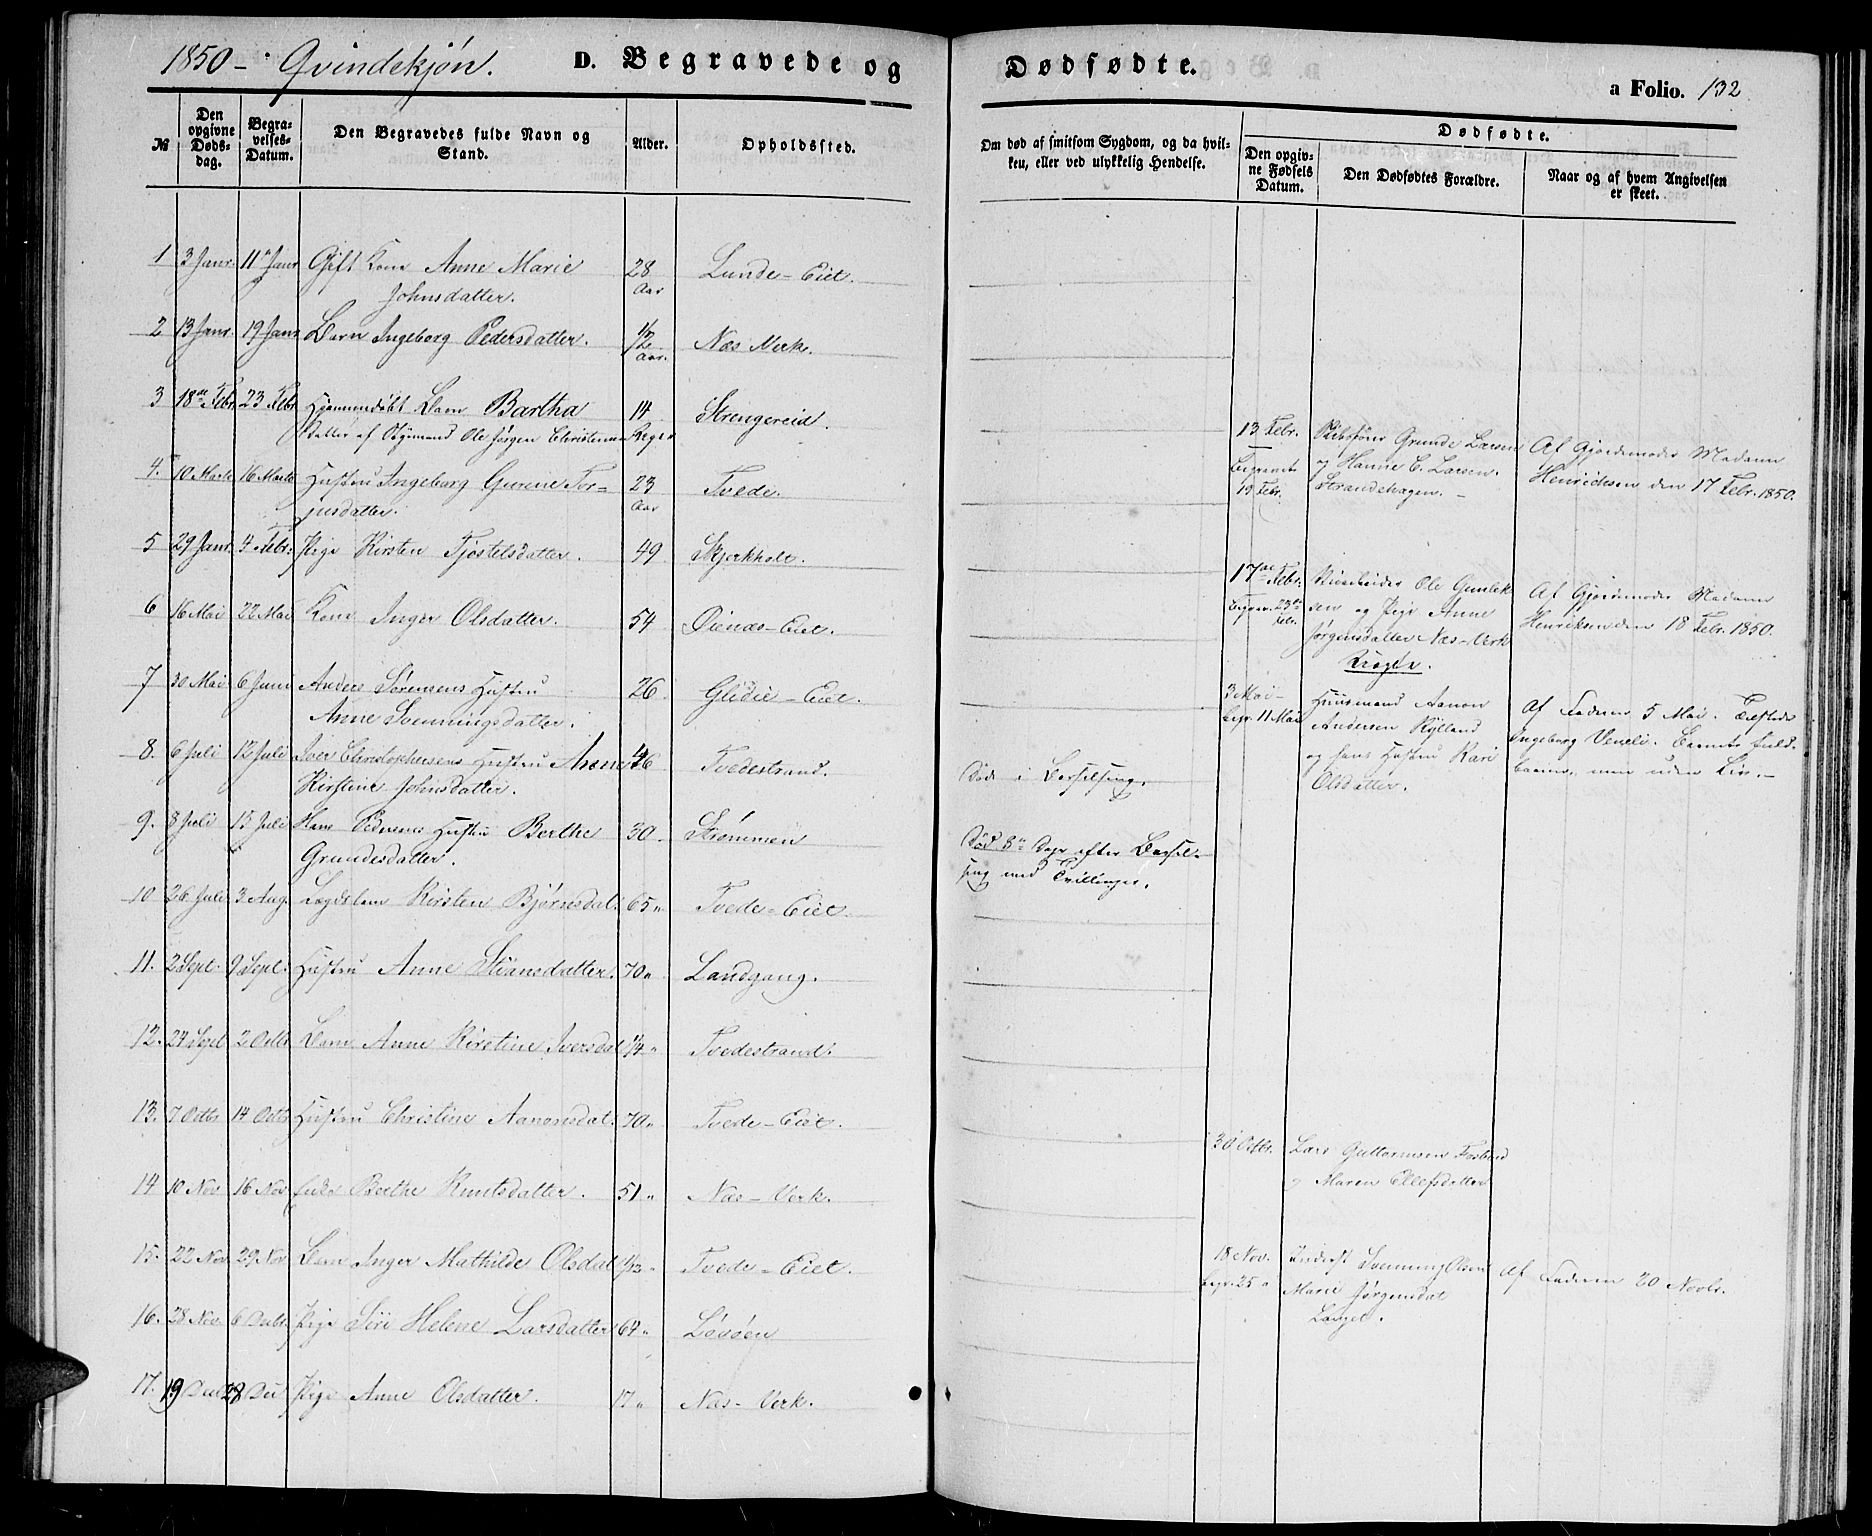 1850 - Qvindekjön. D. Begravede og Dødfødte.
a Folio. 132
№ Den opgivne Døds-dag. Begra-velses-Datum. Den Begravedes fulde Navn og Stand. Alder. Opholdssted.
Om død af smitsom Sygdom, og da hvil-ken, eller ved ulykkelig Hendelse.
Dødfødte.
Den opgiv-ne Fødsels Datum. Den Dødfødtes Forældre. Naar og af hvem Angivelsen er skeet.
1 3 Janr. 11 Janr Gift Kone Anne Marie 28 Lunde-Eiet.
Johnsdatter. Aar
2 13 Janr. 19 Janr Barn Ingeborg Pedersdatter. 1/2 Næs Verk.
Aar.
3 18de Febr 23 Febr Hjemmedøbt Barn Bartha 14 Strengereid.
Datter af Ole Jørgen Christensen Dage
4. 10 Marts 16 Marts Hustru Ingeborg Gurine Tor- 23 Tvede.
jusdatter. Aar
5 29 Janr. 4 Febr. Pige Kirsten Tjøstelsdatter. 49 Skjerkholt.
6 16 Mai 22 Mai Kone Inger Olsdatter. 54 Øienæs-Eiet.
7 30 Mai 6 Juni Anders Sørensens Hustru 26 Glidie-Eiet.
Anne Svenningsdatter.
8. 6 Juli 12 Juli Iver Christophersens Hustru Anne 46 Tvedestrand.
Kirstine Johnsdatter.
9. 8 Juli 15 Juli Hans Hustru Berthe 30 Strømmen
Grundesdatter.
10 26 Juli 3 Aug. Lægdslem Kirsten Bjørnsdat. 65 " Tvede-Eiet.
11. 2 Sept. 9 Sept. Hustru Anne Stiansdatter. 70 " Landgang.
12. 24 Sept 2 Octbr Barn Anne Kirstine Iversdat 1/4 " Tvedestrand.
13. 7 Octbr 14 Octbr Hustru Christine Aanonsdat. 70 " Tvede-Eiet.
14 10 Nov 16 Nov Enke Berthe Knutsdatter. 51 " Næs-Verk.
15. 22 Nov 29 Nov Barn Inger Mathilde Olsdat 1/12 " Tvede-Eiet.
16. 28 Nov. 6 Decbr. Pige Siri Helene Larsdatter 64 " Løvøen
17. 19 Decbr 28 Dec Pige Anne Olsdatter. 17 " Næs-Verk.
Død i Barselseng.
Død 8de Dage efter Barsel-
seng med Tvillinger.
13 Febr. Skibsfører Grunde Larsen Af Gjordemoder Madam
Begravet og Hanne C. Larsen. Henrichsen den 17 Febr. 1850.
19 Febr. Strandehagen. -
17de Febr. Ole Gunlek- Af Gjordemoder Madam
Begrav. 23de sen og Pige Anne Henriksen den 18 Febr. 1850.
Febr. Jørgensdatter Næs-Verk
Uægte.
3 Mai - Huusmand Aanon Af Faderen 5 Mai.
begr. 11 Mai Andersen Rylland Ingeborg Veneli. Barnet fuld-
og hans Hustru Kari baaren, men uden Liv. -
Olsdatter.
30 Octbr. Lars Guttormsen Fosbud
og Maren Ellefsdatter
18 Nov. Inderst Svenning Olsen Af Faderen 20 Novbr.
begr. 25 " Marie Jørgensdat
Langet.